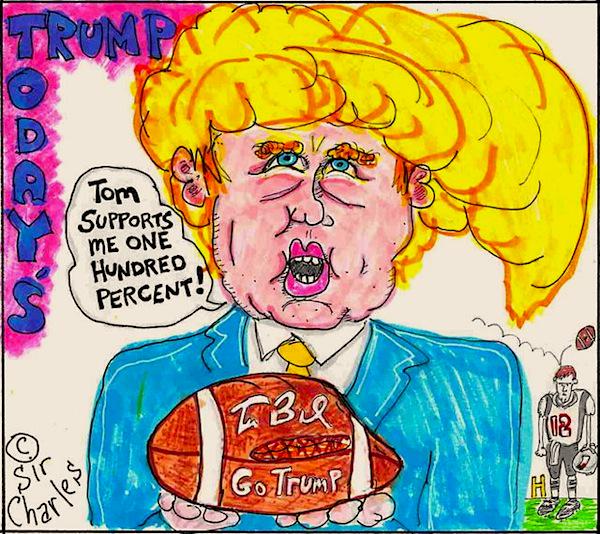 TRUMP
TODAY'S
TOM
SUPPORTS
ME ONE
HUNDRED
PERCENT!
Go Trump
18
©
Sir
Charles